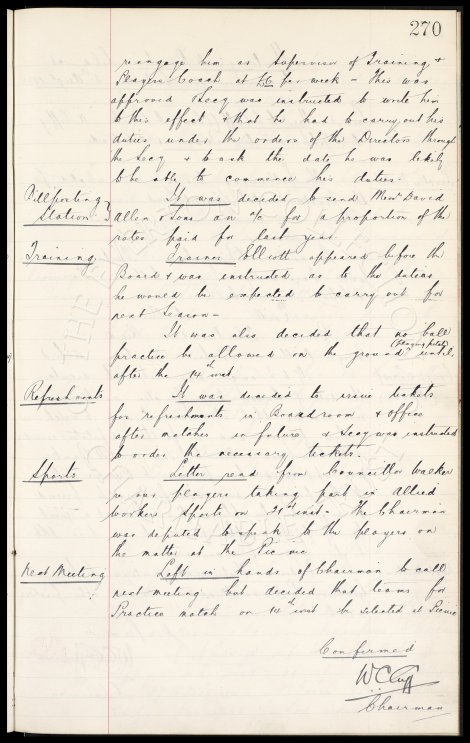 270
re engage him as Supervisor of Training &
Players Coach at £6 per week - This was
approved & Secy was instructed to write him
to this effect & that he had to carry out his
duties under the orders of the Directors through
the Secy & to ask the date he was likely
to be able to commence his duties.
Billposting Station } It was decided to send Messrs David
Allen & Sons an a/c for a proportion of the
rates paid for last year.
Training Trainer Elliott appeared before the
Board & was instructed as to the duties
he would be expected to carry out for
next Season -
It was also decided that no ball
practice be allowed on the ground (playing pitch) until
after the 14th inst.
Refreshments It was decided to issue tickets
for refreshments in Boardroom & Office
after matches in future & Secy was instructed
to order the necessary tickets.
Sports Letter read from Councillor Walker
re our players taking part in Allied
Workers Sports on 21st inst - The Chairman
was deputed to speak to the players on
the matter at the Pic nic
Next Meeting Left in hands of Chairman to call
next meeting but decided that teams for
Practice match on 14th inst be selected at Picnic
Confirmed
W C Cuff
Chairman